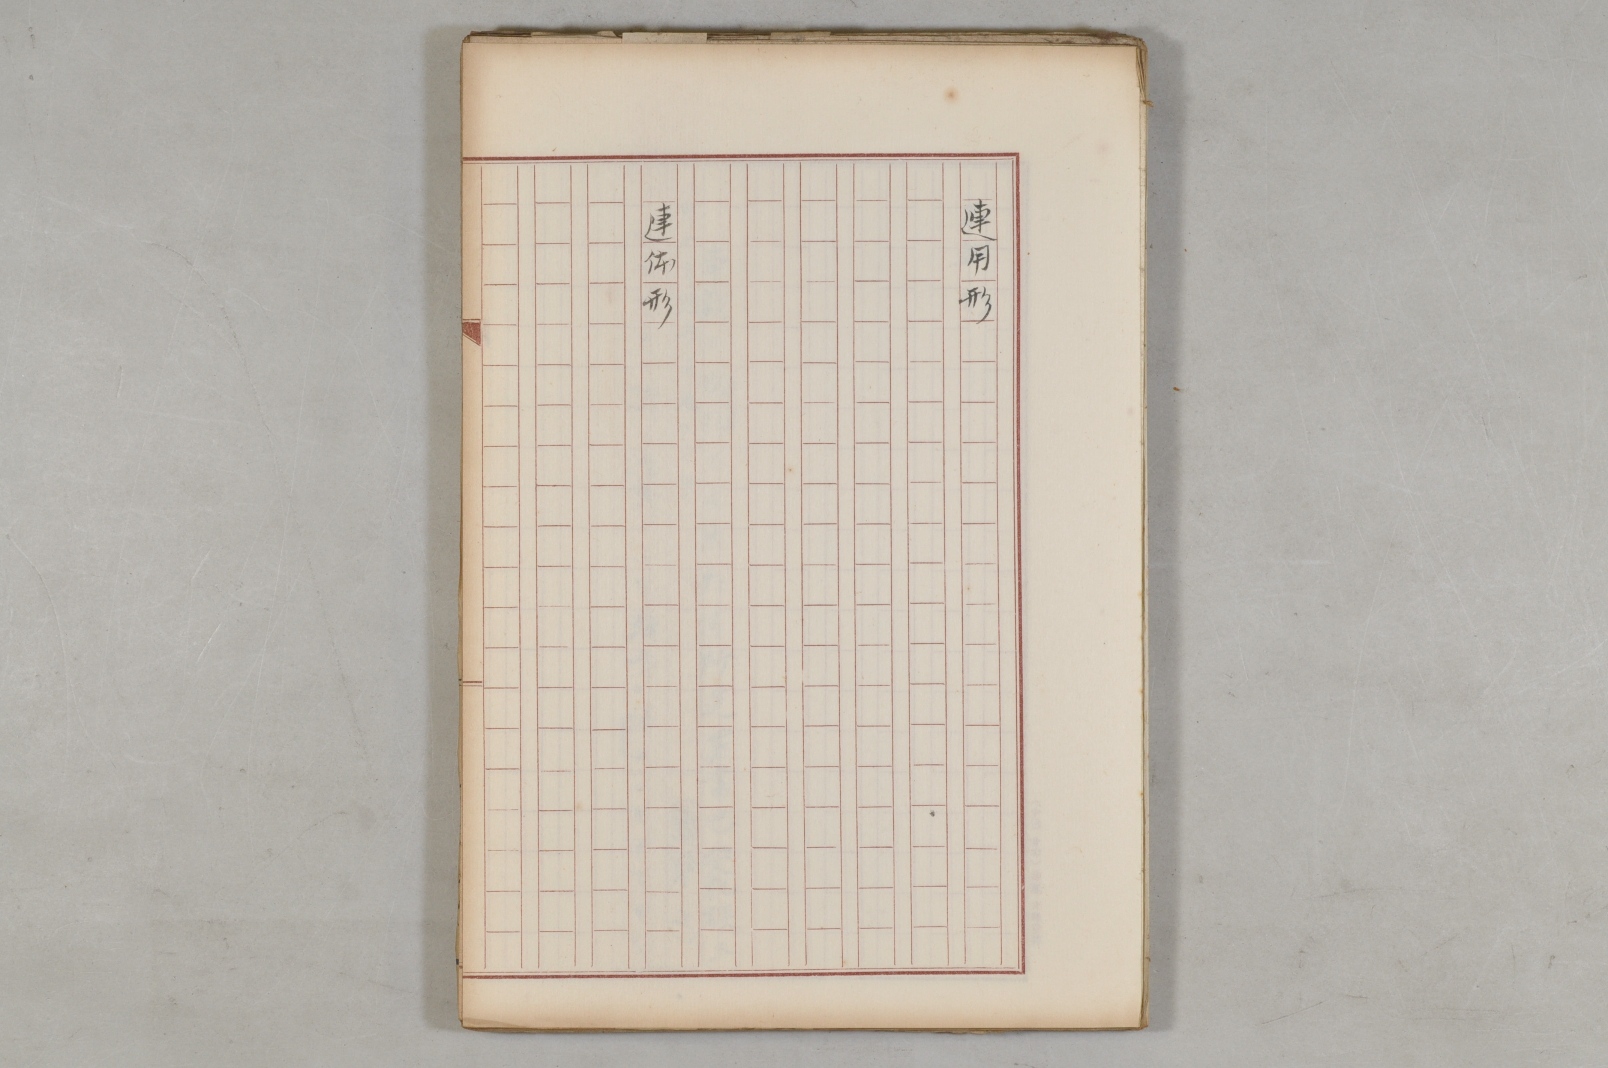 連用形
連体形